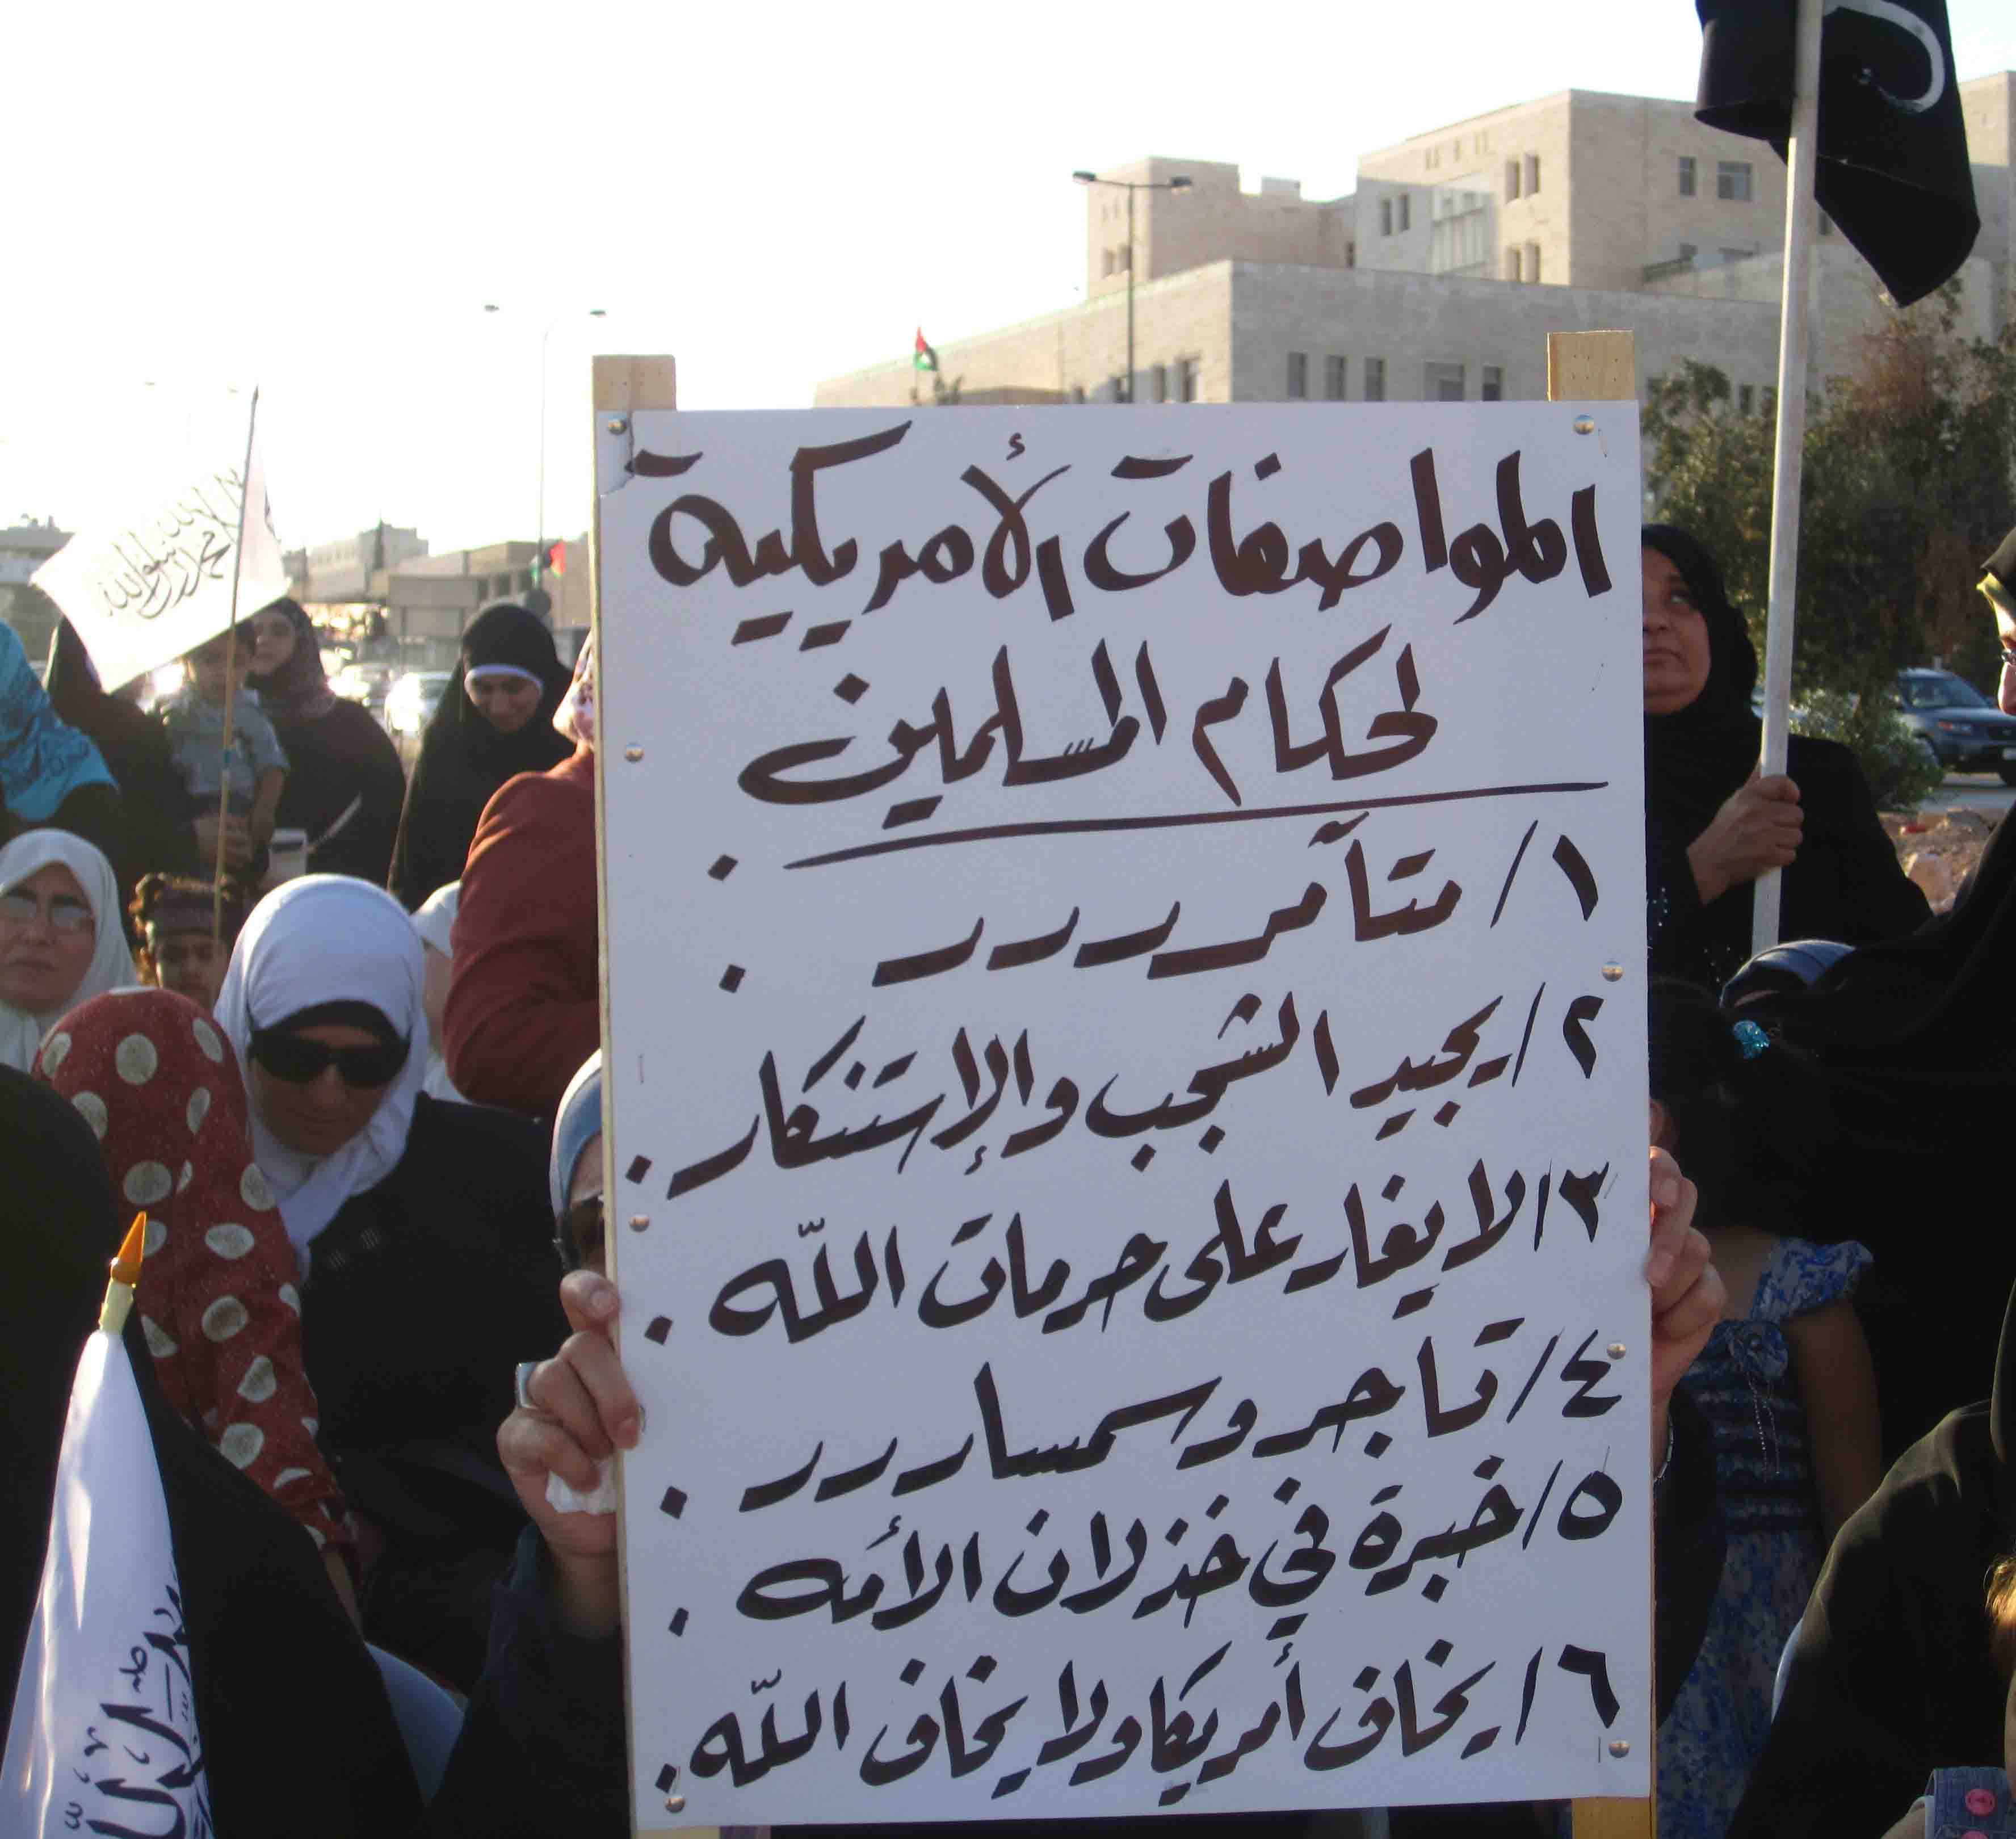 المواصفات الأمريكية
لحكام المسلمين
١/ متآمرررر .
٢/ يجيد الشجب والإستنكار .
٣/ لا يغار على حرمات اللّه .
٤/ تاجر وسمساررر .
٥/ خبرة في خذلان الأمه .
٦/ يخاف أمريكا ولا يخاف اللّه .
لا إله إلا الله
محمد رسول الله